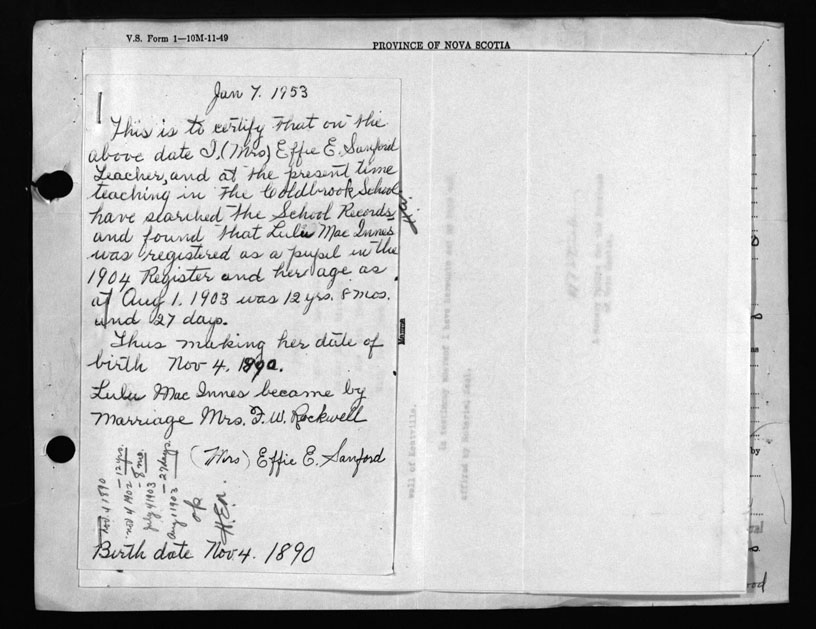 V.S. Form 1—10M-11-49
PROVINCE OF NOVA SCOTIA
Jan 7. 1953
This is to certify that on the
above date I, (Mrs) Effie E. Sanford
Teacher, and at the present time
teaching in the Coldbrook School
have searched the School Records
and found that Lulu Mac Innes
was registered as a pupil in the
1904 Register and her age as
at Aug 1. 1903 was 12 yrs. 8 mos.
and 27 days.
Thus making her date of
birth Nov 4. 1890.
Lulu Mac Innes became by
marriage Mrs. F. W. Rockwell
(Mrs) Effie E. Sanford
Nov 4 1890
Nov 4 1902 — 12 yrs.
July 4 1903 — 8 mo.
Aug 1 1903 — 27 days.
ok
H.E.R.
Birth date Nov. 4. 1890
wall of Kentville.
In testimony whereof I have hereunto set my hand and
affixed my Notarial Seal.
A Notary Public for the Province
of Nova Scotia.